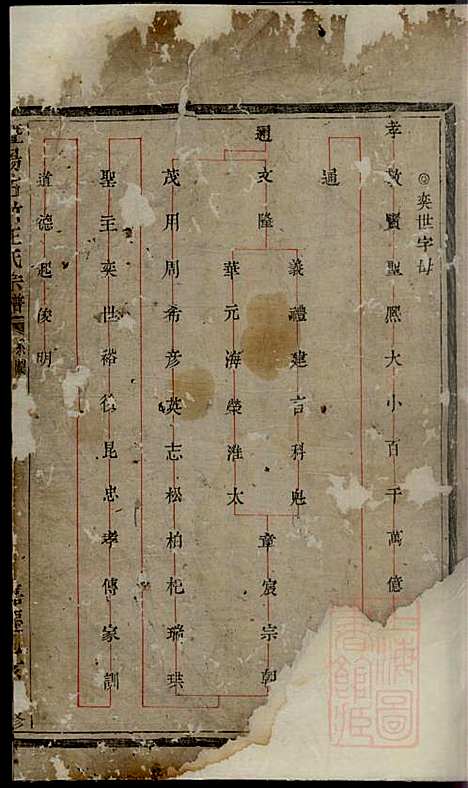 奕世字母
孝敬寶聖熙大小百千萬億
通
通文隆
義禮建言科魁
華元海榮淮太
章宸宗朝
茂用周希彥英志松柏杞瑞珙
聖主奕世裕後昆忠孝傳家訓
道德起俊明
王氏宗譜
上海圖書館藏